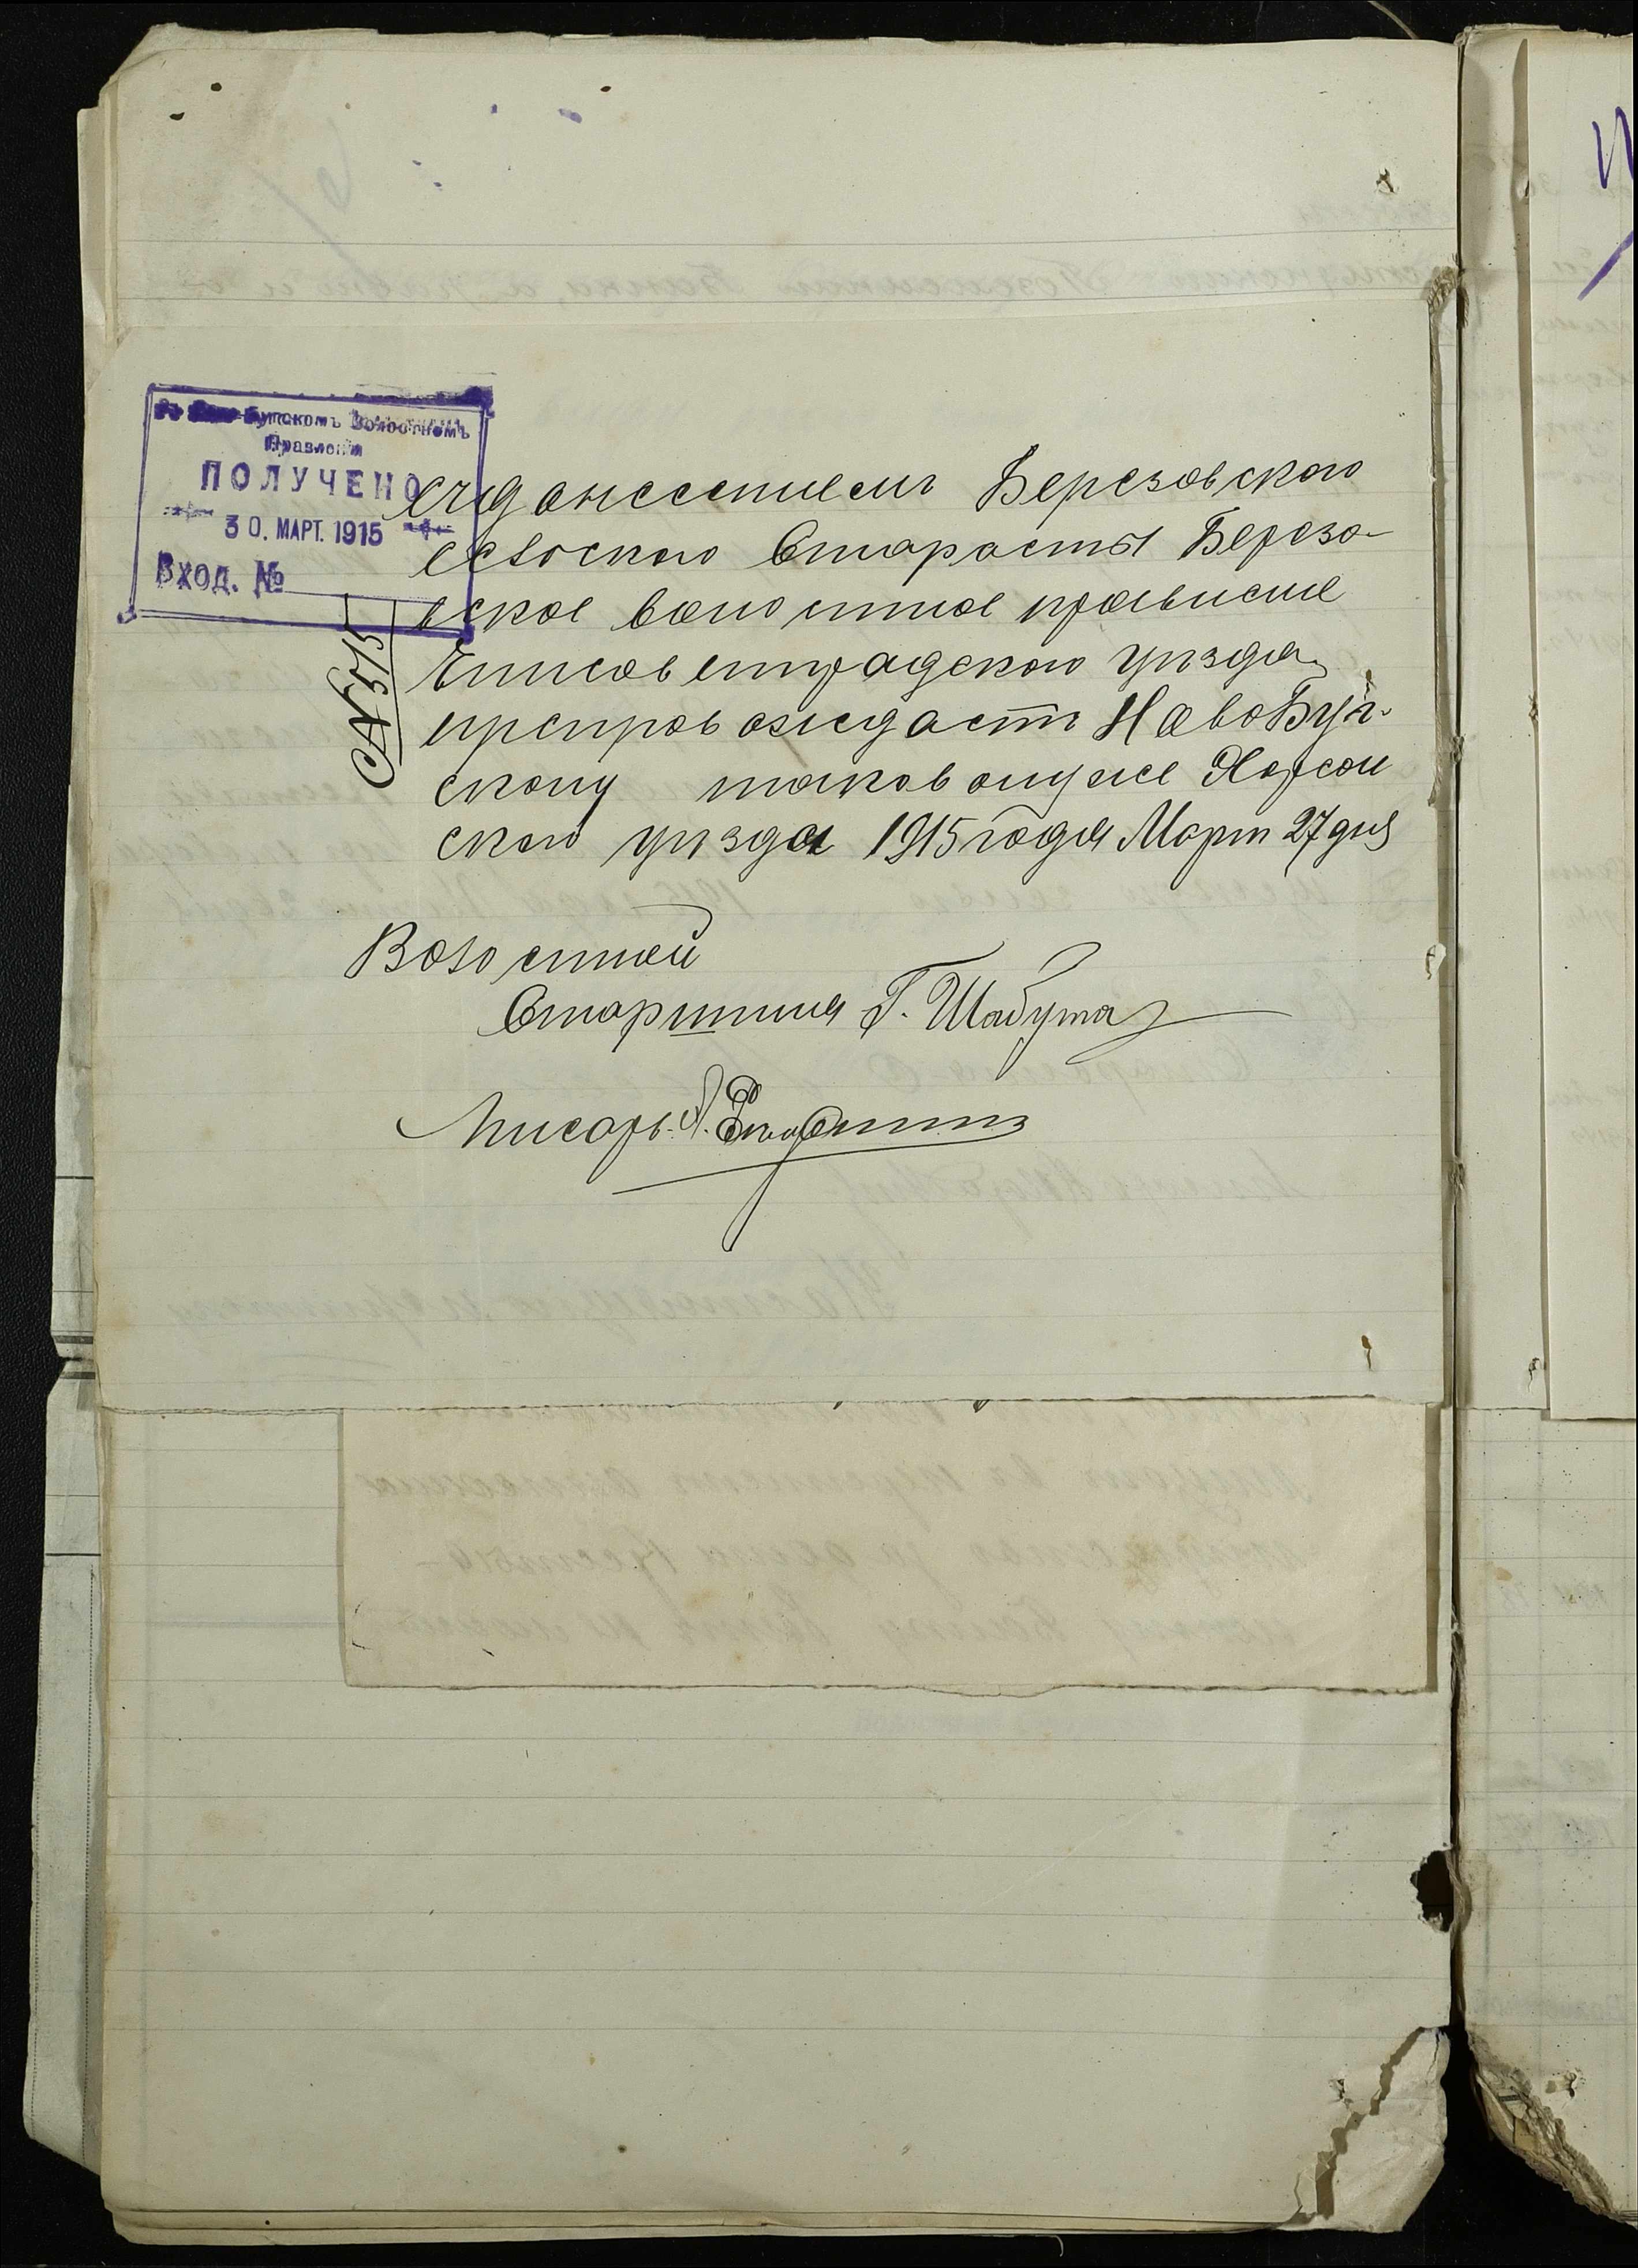 Бугскомъ Волостномъ
Правленіи
ПОЛУЧЕНО
30. МАРТ. 1915
Вход. №
№ 515
донесеніемъ Березовскаго
сельскаго Старосты Березо-
вское волостное правленіе
Елисаветградскаго уѣзда
препровождаетъ НовоБуг-
скому таковомуже Херсон
скаго уѣзда 1915 года Март 27 дня
Волостной
Старшина Г. Шабута
Писарь